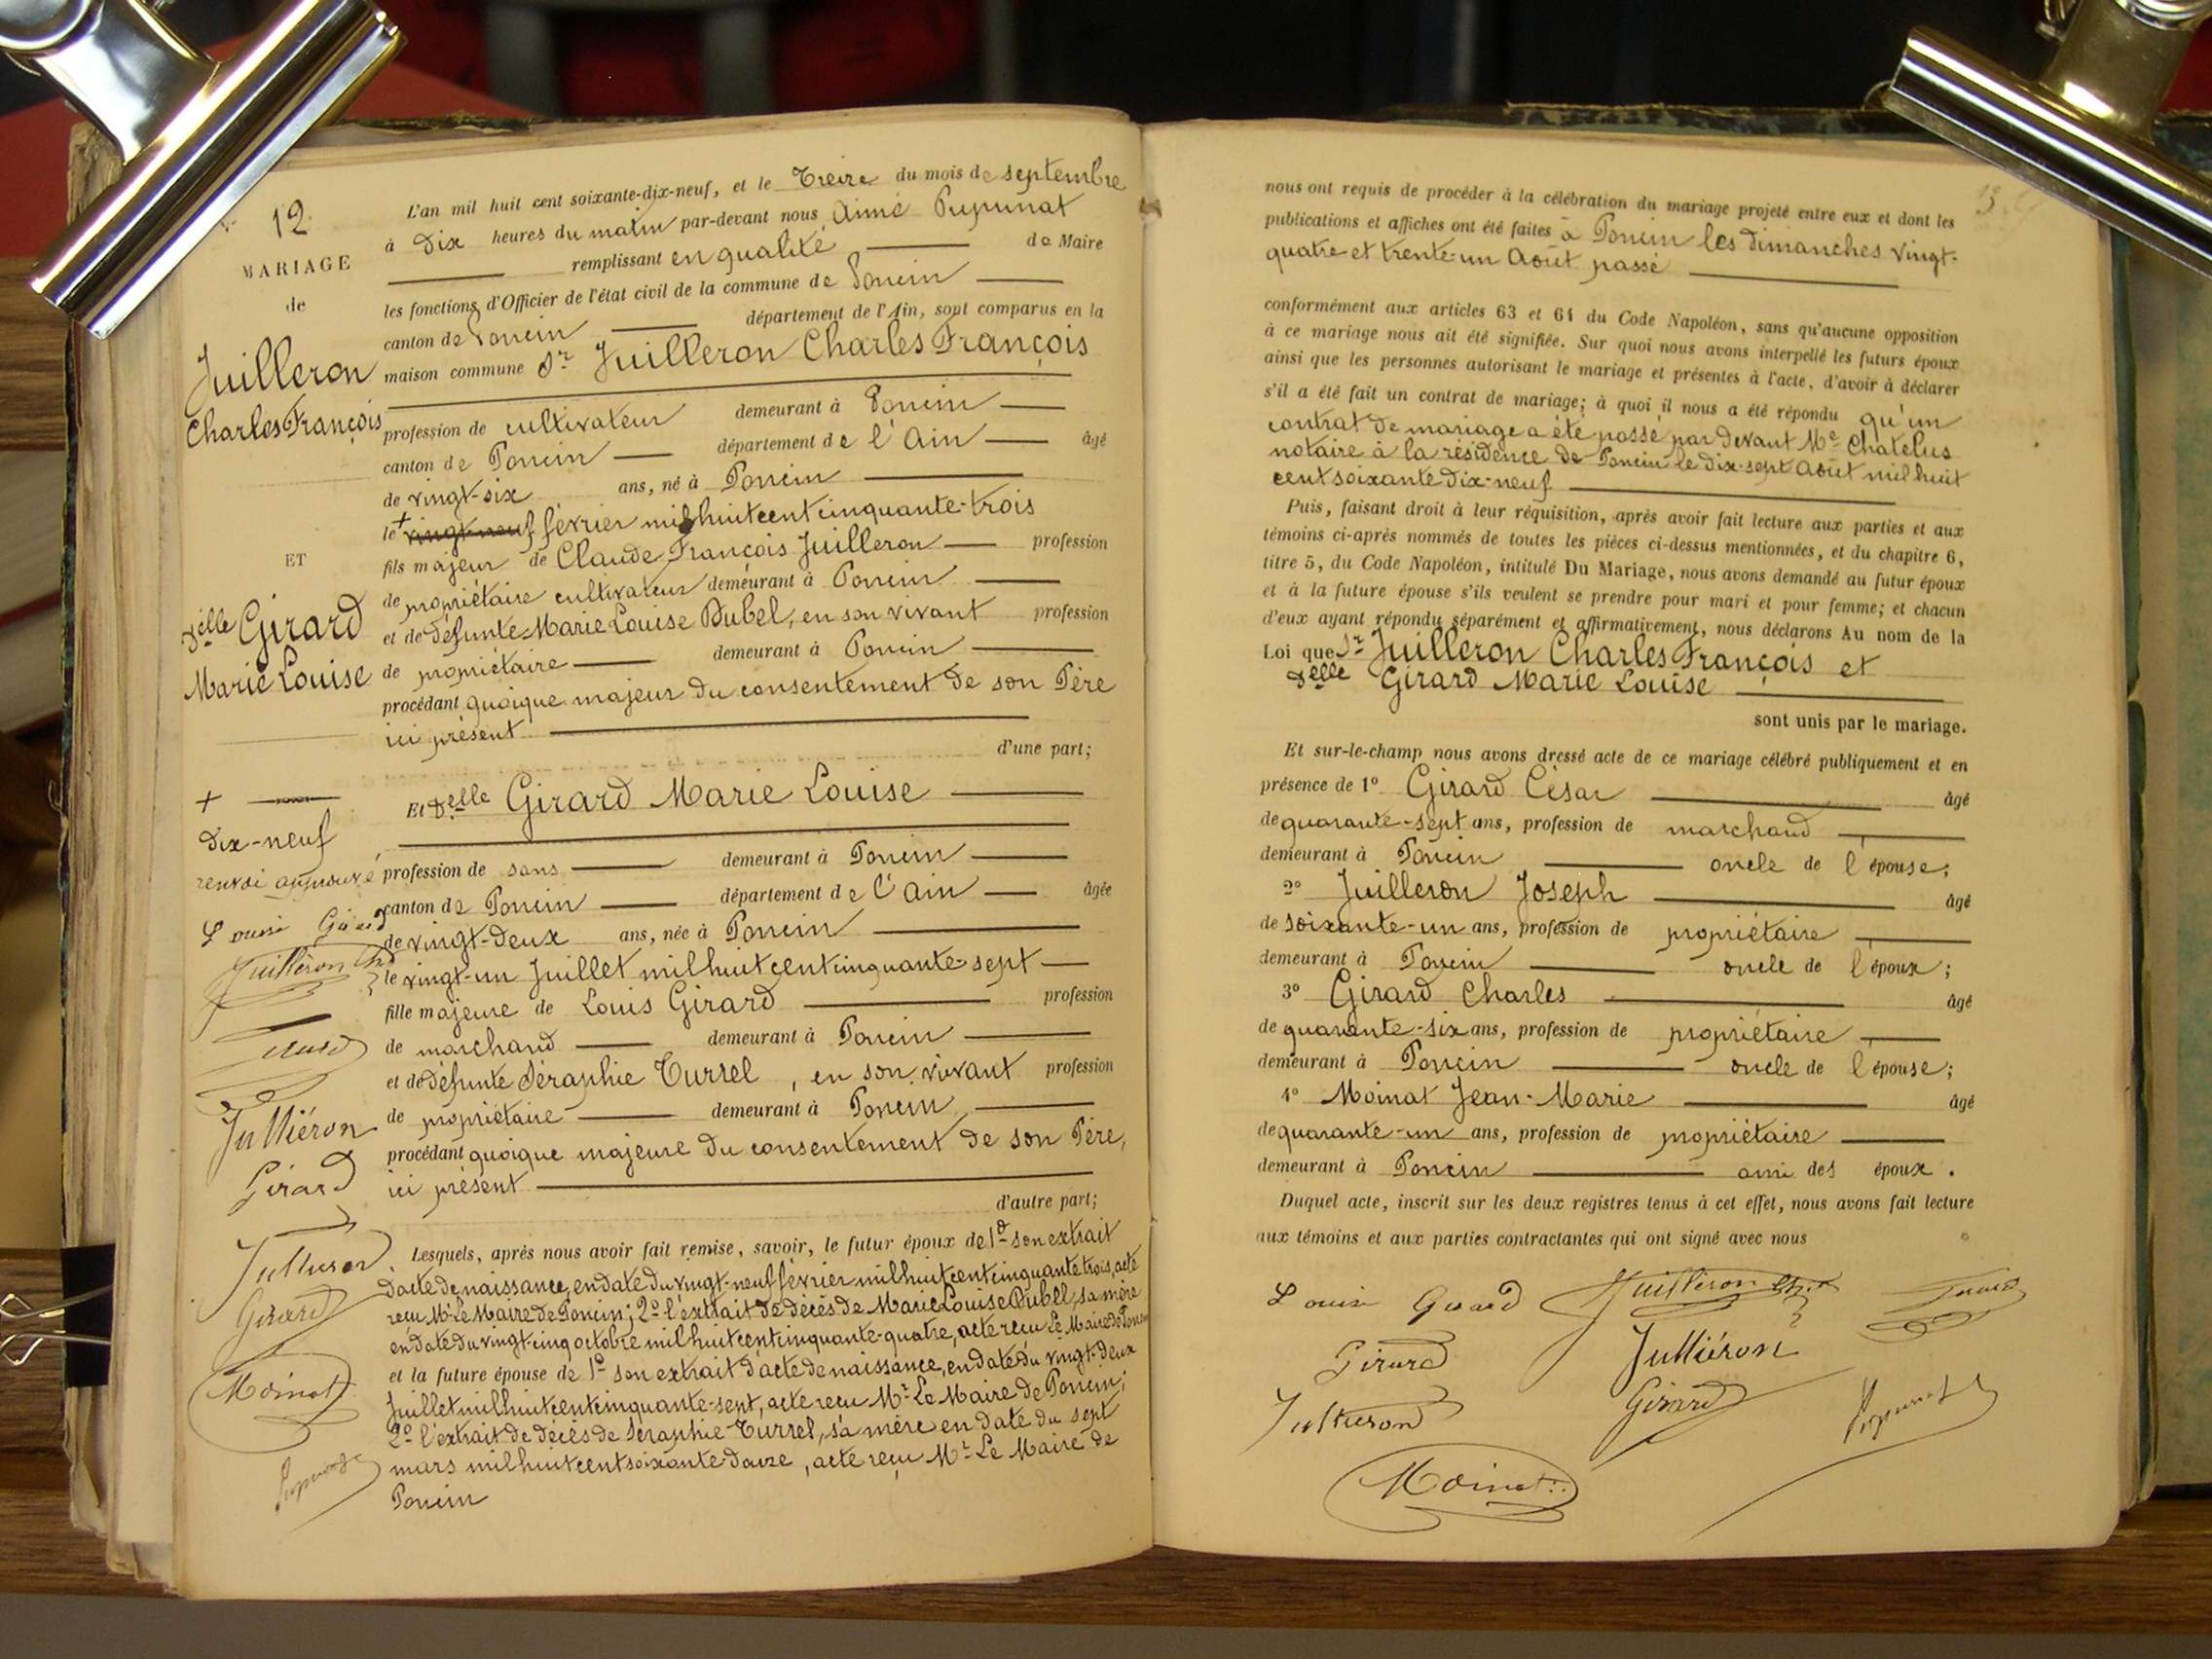 12
MARIAGE
de
Juilleron
Charles François
ET
Delle Girard
Marie Louise
+
dix-neuf
renvoi approuvé
Louise Girard
Juilleron Ch.
Girard
Julliéron
Girard
Jullieron
Girard
Moinat
L'an mil huit cent soixante-dix-neuf, et le Treize du mois de septembre
à dix heures du matin par-devant nous Aimé Pupunat
remplissant en qualité de Maire
les fonctions d'Officier de l'état civil de la commune de Poncin
canton de Poncin département de l'Ain, sont comparus en la
maison commune Sr Juilleron Charles François
profession de cultivateur demeurant à Poncin
canton de Poncin département de l'Ain âgé
de vingt-six ans, né à Poncin
le + vingt-neuf février mil huit cent cinquante-trois
fils majeur de Claude François Juilleron profession
de propriétaire cultivateur demeurant à Poncin
et de défunte Marie Louise Dubel, en son vivant profession
de propriétaire demeurant à Poncin
procédant quoique majeur du consentement de son Père
ici présent
d'une part;
Et Delle Girard Marie Louise
profession de sans demeurant à Poncin
canton de Poncin département de l'Ain âgée
de vingt-deux ans, née à Poncin
le vingt-un Juillet mil huit cent cinquante-sept
fille majeure de Louis Girard profession
de marchand demeurant à Poncin
et de défunte Séraphie Turrel, en son vivant profession
de propriétaire demeurant à Poncin
procédant quoique majeure du consentement de son Père,
ici présent
d'autre part;
Lesquels, après nous avoir fait remise, savoir, le futur époux de 1o son extrait
d'acte de naissance, en date du vingt-neuf février mil huit cent cinquante trois, acte
reçu Mr Le Maire de Poncin; 2o l'extrait de décès de Marie Louise Dubel, sa mère
en date du vingt-cinq octobre mil huit cent cinquante-quatre, acte reçu Le Maire de Poncin
et la future épouse de 1o son extrait d'acte de naissance, en date du vingt-deux
Juillet mil huit cent cinquante-sept, acte reçu Mr Le Maire de Poncin;
2o l'extrait de décès de Séraphie Turrel, sa mère en date du sept
mars mil huit cent soixante-douze, acte reçu Mr Le Maire de
Poncin
nous ont requis de procéder à la célébration du mariage projeté entre eux et dont les
publications et affiches ont été faites à Poncin les dimanches vingt-
quatre et trente-un Août passé
conformément aux articles 63 et 64 du Code Napoléon, sans qu'aucune opposition
à ce mariage nous ait été signifiée. Sur quoi nous avons interpellé les futurs époux
ainsi que les personnes autorisant le mariage et présentes à l'acte, d'avoir à déclarer
s'il a été fait un contrat de mariage; à quoi il nous a été répondu qu'un
contrat de mariage a été passé par devant Me Chatelus
notaire à la résidence de Poncin le dix-sept Août mil huit
cent soixante dix-neuf
Puis, faisant droit à leur réquisition, après avoir fait lecture aux parties et aux
témoins ci-après nommés de toutes les pièces ci-dessus mentionnées, et du chapitre 6,
titre 5, du Code Napoléon, intitulé Du Mariage, nous avons demandé au futur époux
et à la future épouse s'ils veulent se prendre pour mari et pour femme; et chacun
d'eux ayant répondu séparément et affirmativement, nous déclarons Au nom de la
Loi que Sr Juilleron Charles François et
Delle Girard Marie Louise
sont unis par le mariage.
Et sur-le-champ nous avons dressé acte de ce mariage célébré publiquement et en
présence de 1o Girard César âgé
de quarante-sept ans, profession de marchand
demeurant à Poncin oncle de l'épouse;
2o Juilleron Joseph âgé
de soixante-un ans, profession de propriétaire
demeurant à Poncin oncle de l'époux;
3o Girard Charles âgé
de quarante-six ans, profession de propriétaire
demeurant à Poncin oncle de l'épouse;
4o Moinat Jean-Marie âgé
de quarante-un ans, profession de propriétaire
demeurant à Poncin ami des époux.
Duquel acte, inscrit sur les deux registres tenus à cet effet, nous avons fait lecture
aux témoins et aux parties contractantes qui ont signé avec nous
Louise Girard Juilleron Ch. Girard
Girard Julliéron
Jullieron Girard Pupunat
Moinat